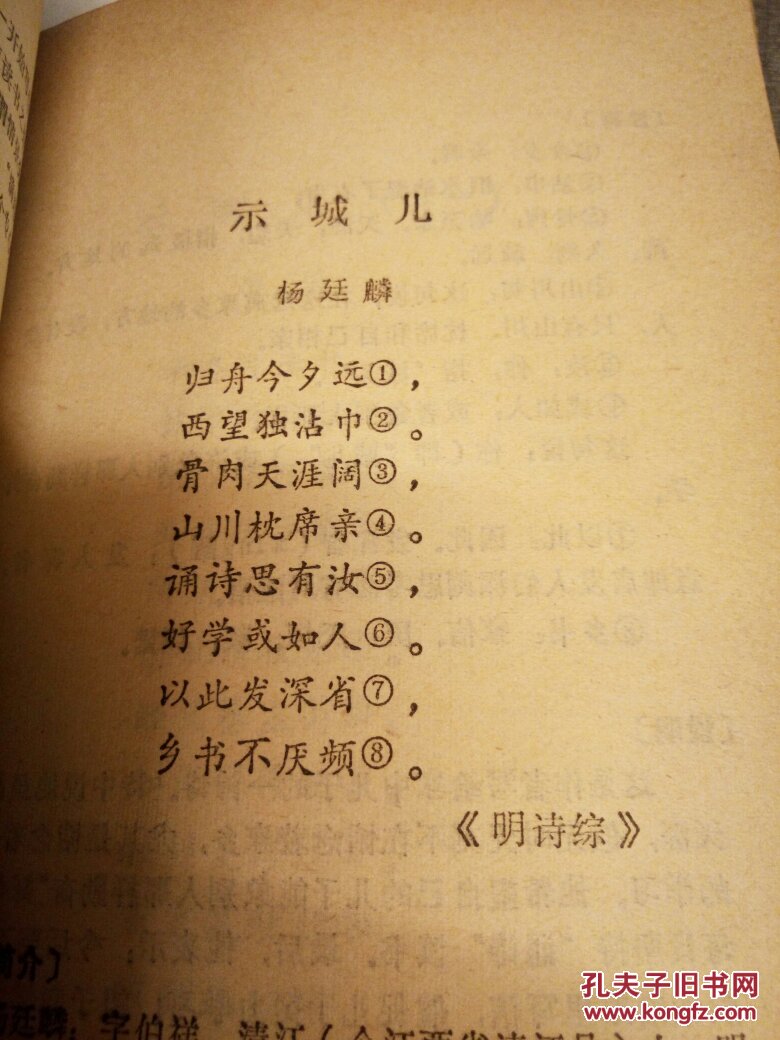 示城儿
杨廷麟
归舟今夕远①，
西望独沾巾②。
骨肉天涯阔③，
山川枕席亲④。
诵诗思有汝⑤，
好学或如人⑥。
以此发深省⑦，
乡书不厌频⑧。
《明诗综》
介〕
字伯祥
孔夫子旧书网
www.kongfz.com